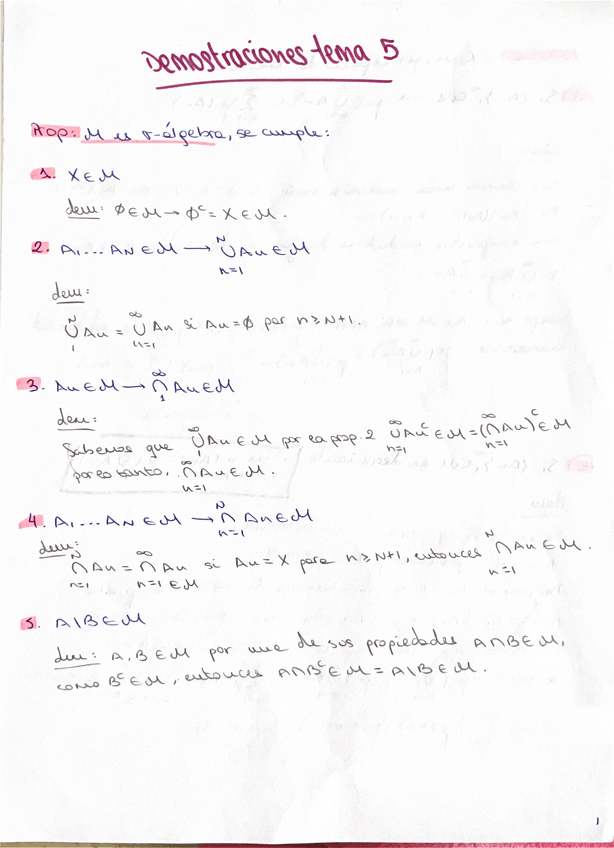 Demostraciones tema 5
Prop: M es σ-álgebra, se cumple:
1. X∈M
dem: ∅∈M → ∅ᶜ = X∈M.
2. A₁...A_N∈M → ⋃_{n=1}^{N} An∈M
dem:
⋃_{1}^{N} An = ⋃_{n=1}^{∞} An si An=∅ por n≥N+1.
3. An∈M → ⋂_{1}^{∞} An∈M
dem:
Sabemos que ⋃_{1}^{∞} An∈M por la prop. 2 ⋃_{n=1}^{∞} Anᶜ∈M = (⋂_{n=1}^{∞} An)ᶜ∈M
por lo tanto, ⋂_{n=1}^{∞} An∈M.
4. A₁...A_N∈M → ⋂_{n=1}^{N} An∈M
dem:
⋂_{n=1}^{N} An = ⋂_{n=1}^{∞} An ∈M si An=X para n≥N+1, entonces ⋂_{n=1}^{N} An∈M.
5. A\B∈M
dem: A,B∈M por una de sus propiedades A∩B∈M,
como Bᶜ∈M, entonces A∩Bᶜ∈M = A\B∈M.
1